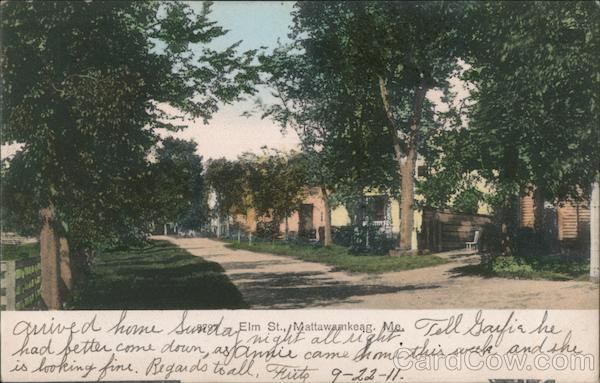 Elm St., Mattawamkeag, Me.
arrived home Sunday night all right Tell Garfie he
had better come down, as Annie came home this week and she
is looking fine. Regards to all, 9-22-11.
CardCow.com